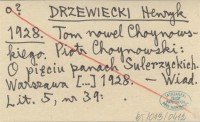 o.?
DRZEWIECKI Henryk
1928. Tom nowel Choynows-
kiego. Piotr Choynowski:
O pięciu panach Sulerzyckich.
Warszawa [...] 1928. — Wiad.
Lit. 5, nr 39.